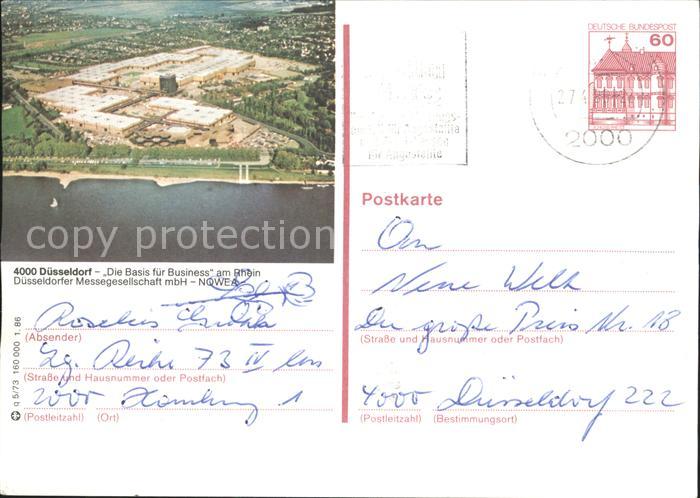 DEUTSCHE BUNDESPOST
60
27.4
2000
für Angestellte
copy protection
4000 Düsseldorf – „Die Basis für Business“ am Rhein
Düsseldorfer Messegesellschaft mbH – NOWEA
Lsg. B
(Absender)
Lg. Reihe 73 IV
(Straße und Hausnummer oder Postfach)
2000 Hamburg 1
(Postleitzahl) (Ort)
q 5/73 160 000 1.86
Postkarte
An
Neue Welt
Der große Preis Nr. 18
(Straße und Hausnummer oder Postfach)
4000 Düsseldorf 222
(Postleitzahl) (Bestimmungsort)